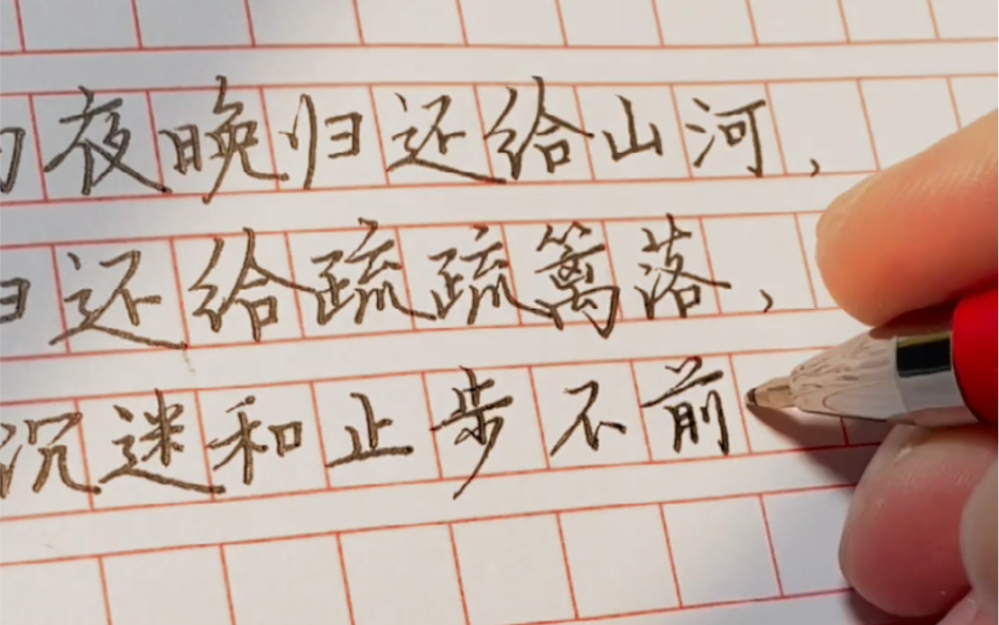 的夜晚归还给山河，
归还给疏疏篱落，
沉迷和止步不前